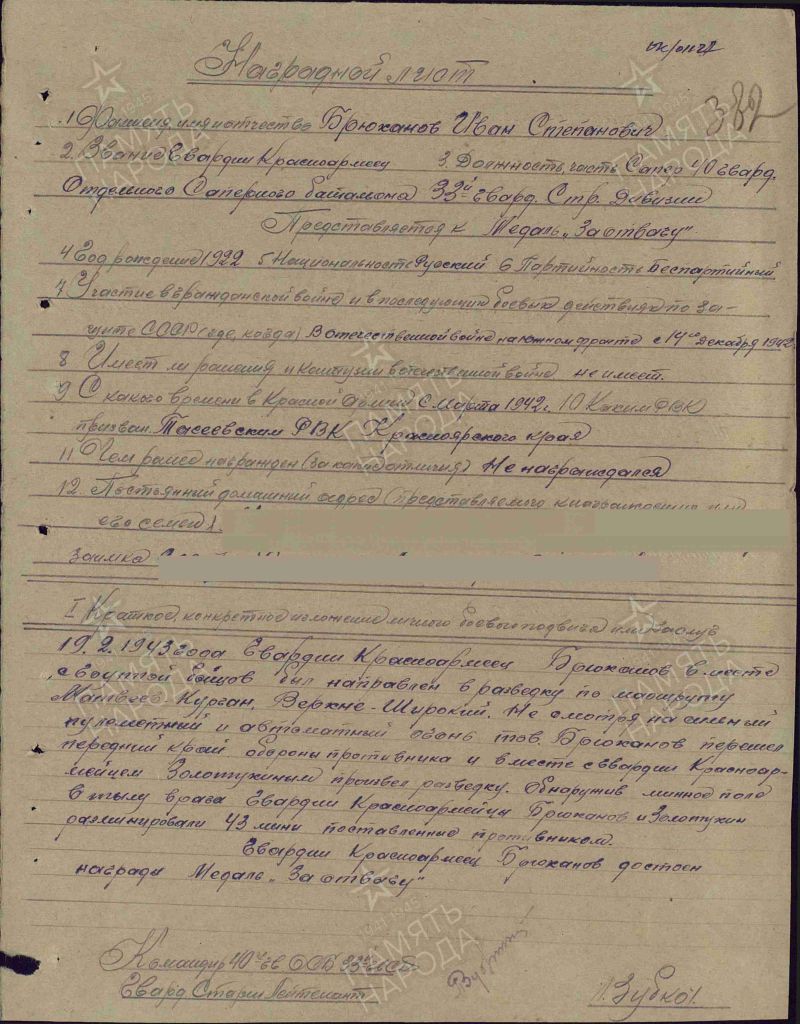 Наградной лист
382
1 Фамилия, имя и отчество Брюханов Иван Степанович
2. Звание Гвардии Красноармеец 3. Должность, часть Сапер 40 Гвард.
Отдельного Саперного батальона 33й Гвард. Стр. Дивизии
Представляется к Медаль „За отвагу"
4 Год рождение 1922 5 Национальность Русский 6 Партийность Беспартийный
7 Участие в гражданской войне и в последующих боевых действиях по за-
щите СССР (где, когда) В отечественной войне на южном фронте с 14го декабря 1942
8 Имеет ли ранения и контузии в отечественной войне не имеет.
9 С какого времени в Красной армии С марта 1942 г. 10 Каким РВК
призван. Тасеевским РВК Красноярского края
11 Чем ранее награжден (за какие отличия) Не награждался
12. Постоянный домашний адрес (представляемого к награждению или
его семьи).
заимка
I Краткое, конкретное изложение личного боевого подвига или заслуг
19. 2. 1943 года Гвардии Красноармеец Брюханов вместе
с группой бойцов был направлен в разведку по маршруту
Матвеев Курган, Верхне-Широкий. Не смотря на сильный
пулеметный и автоматный огонь тов. Брюханов перешел
передний край обороны противника и вместе с гвардии Красноар-
мейцем Золотухиным произвел разведку. Обнаружив минное поле
в тылу врага Гвардии Красноармейцы Брюханов и Золотухин
разминировали 43 мины поставленные противником.
Гвардии Красноармеец Брюханов достоен
награды Медаль „За отвагу"
Командир 40 Гв ОСБ 33
Гвард. Старш Лейтенант
ПАМЯТЬ
НАРОДА